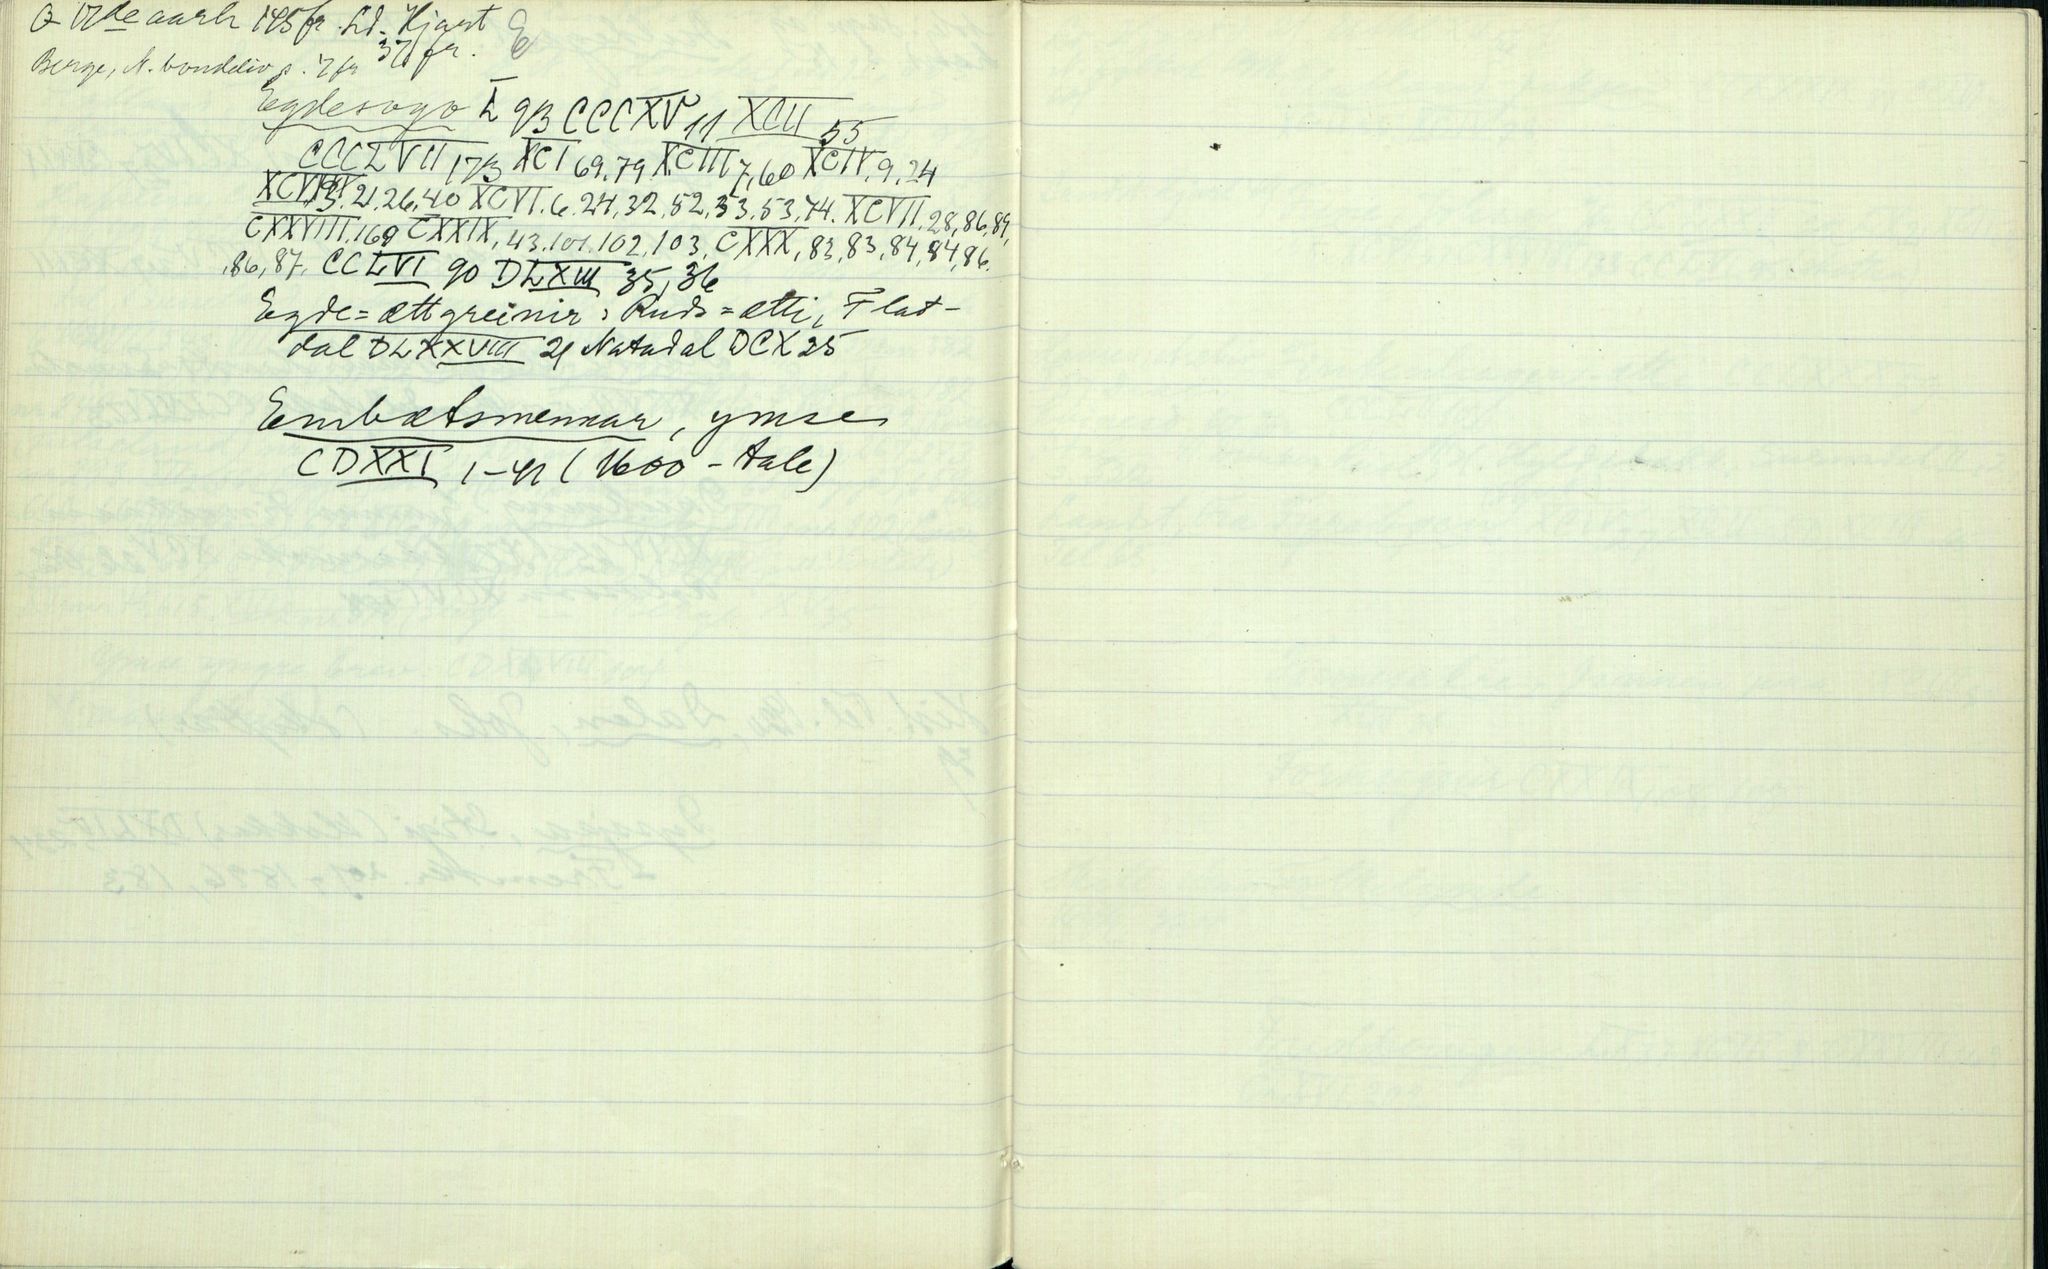 17de aarh 145 fr. Ld. Hjart 37 fr. E
Berge, N. bondeliv s. 7 fr
Egdesogo L 93 CCCXV 11 XCII 55
CCCLVII 173 XCI 69, 79 XCIII 7, 60 XCIV, 9, 24
21, 26, 40 XCVI. 6, 24, 32, 52, 53, 53, 74. XCVII. 28, 86, 89,
CXXVIII. 169 CXXIX, 43. 101. 102, 103, CXXX, 83, 83, 84, 84, 86.
, 86, 87, CCLVI 90 DLXIII 35, 36
Egde=ættgreinir: Ruds=ætti, Flat-
dal DLXXVIII 21 Natadal DCX 25
Embætsmennar, ymse
CDXXI 1-41 (1600-tale)